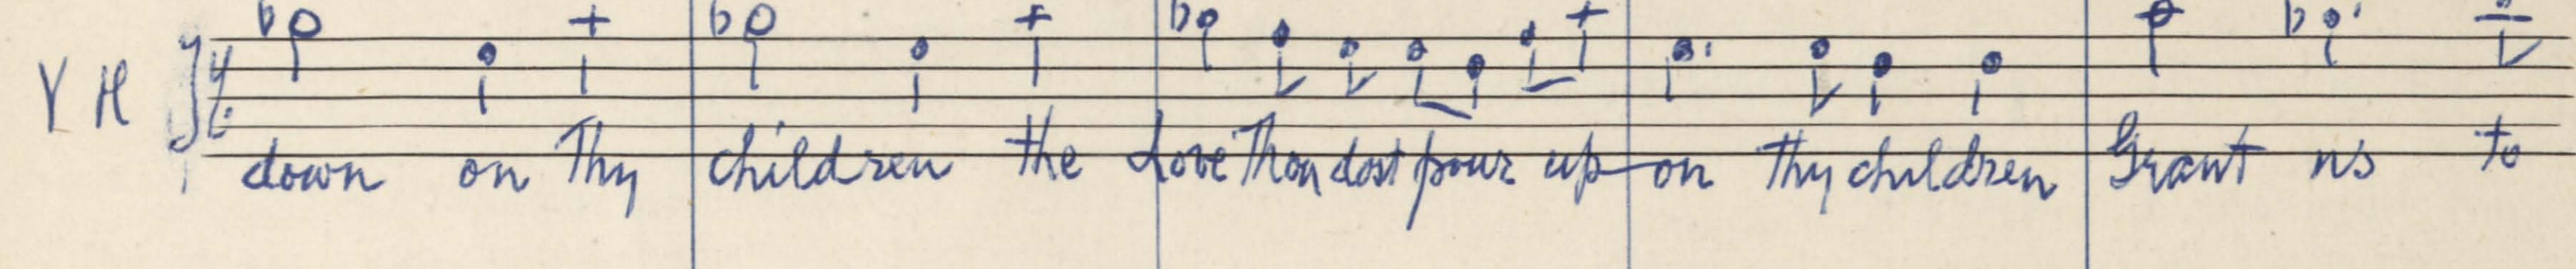 V H
down on Thy children the Love Thou dost pour up-on Thy children Grant us to